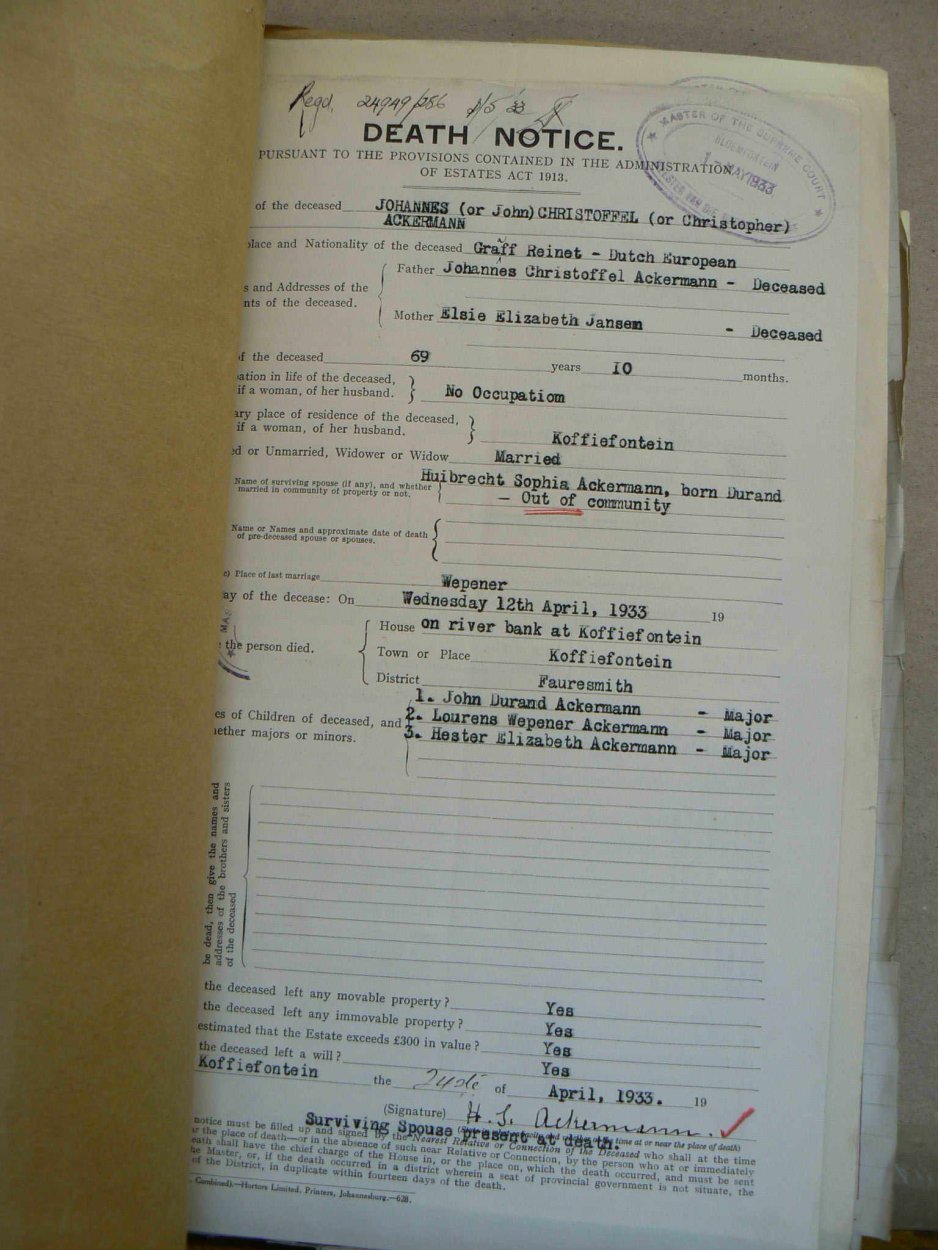 Regd. 24949/256 1/5/33
DEATH NOTICE.
MASTER OF THE SUPREME COURT
BLOEMFONTEIN
1 - MAY 1933
PURSUANT TO THE PROVISIONS CONTAINED IN THE ADMINISTRATION
OF ESTATES ACT 1913.
of the deceased JOHANNES (or John) CHRISTOFFEL (or Christopher)
ACKERMANN
place and Nationality of the deceased Graff Reinet - Dutch European
Father Johannes Christoffel Ackermann - Deceased
s and Addresses of the
nts of the deceased.
Mother Elsie Elizabeth Jansem - Deceased
of the deceased 69 years 10 months.
ation in life of the deceased,
if a woman, of her husband. No Occupatiom
ary place of residence of the deceased,
if a woman, of her husband. Koffiefontein
ed or Unmarried, Widower or Widow Married
Name of surviving spouse (if any), and whether
married in community of property or not.
Huibrecht Sophia Ackermann, born Durand
- Out of community
Name or Names and approximate date of death
of pre-deceased spouse or spouses.
e) Place of last marriage Wepener
ay of the decease: On Wednesday 12th April, 1933 19
MA
House on river bank at Koffiefontein
the person died.
Town or Place Koffiefontein
District Fauresmith
1. John Durand Ackermann - Major
es of Children of deceased, and 2. Lourens Wepener Ackermann - Major
ether majors or minors. 3. Hester Elizabeth Ackermann - Major
be dead, then give the names and
addresses of the brothers and sisters
of the deceased
the deceased left any movable property? Yes
the deceased left any immovable property? Yes
estimated that the Estate exceeds £300 in value? Yes
the deceased left a will? Yes
Koffiefontein the of April, 1933. 19
(Signature) H. S. Ackermann.
Surviving Spouse present at death.
time at or near the place of death)
notice must be filled up and signed by the Nearest Relative or Connection of the Deceased who shall at the time
r the place of death—or in the absence of such near Relative or Connection, by the person who at or immediately
eath shall have the chief charge of the House in, or the place on, which the death occurred, and must be sent
he Master, or, if the death occurred in a district wherein a seat of provincial government is not situate, the
of the District, in duplicate within fourteen days of the death.
Combined).—Hortors Limited. Printers, Johannesburg.—628.